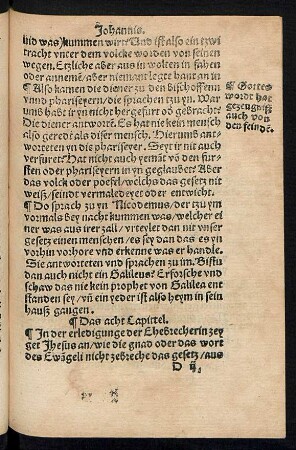 Johannis.
vnd was kummen wirt? Vnd ist also ein zwi
tracht vnter dem volcke worden von seinen
wegen. Etzliche aber auß in wolten in fahen
oder annemē/ aber niemant legte hant an in
¶ Also kamen die diener zu den bischoffenn
vnnd phariseyern/ die sprachen zu yn. War
umb habt ir yn nicht her gefurt oď gebracht?
Die diener antwort. Es hat nie kein mensch
also geredt als diser mensch. Hierumb ant-
worteten yn die phariseyer. Seyt ir nit auch
verfuret? Hat nicht auch yemāt vō den fur-
sten oder phariseyern in yn geglaubet? Aber
das volck oder pöefel/ welchs das gesetz nit
weiß/ seindt vermaledeyet oder entwicht.
¶ Do sprach zu yn Nicodemus/ der zu ym
vormals bey nacht kummen was/ welcher ei
ner was aus irer zall/ vrteylet dan nit vnser
gesetz einen menschen/ es sey dan das es yn
vorhin vorhore vnd erkenne was er handle.
Sie antworteten vnd sprachen zu im. Bistu
dan auch nicht ein Galileus? Erforsche vnd
schaw das nie kein prophet von Galilea ent
standen sey/ vn̄ ein yeder ist also heym in sein
hauß gangen.
¶ Das acht Capittel.
¶ In der erledigunge der Ehebrecherin zey
get Jhesus an/ wie die gnad oder das wort
des Ewāgeli nicht zebreche das gesetz/ aus
D ij
¶ Gottes
wordt hat
gezeugniß
auch von
den feindē.